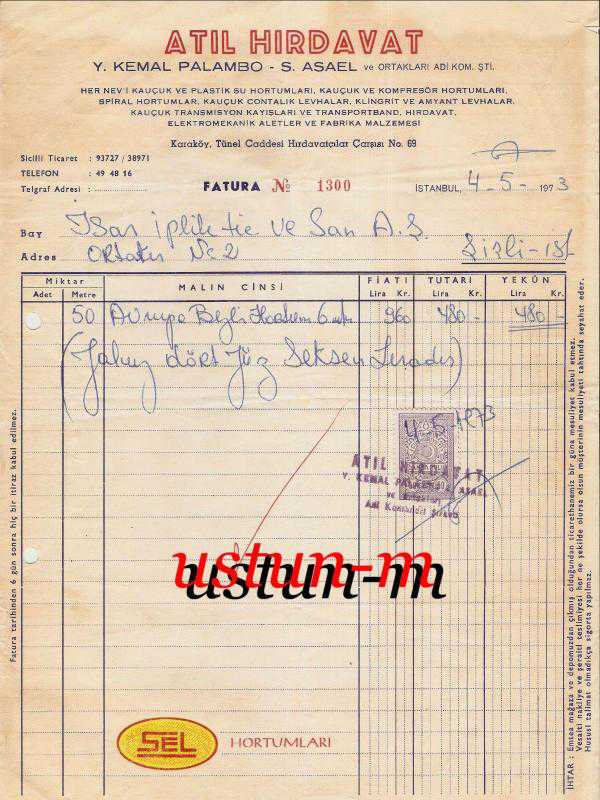 ATIL HIRDAVAT
Y. KEMAL PALAMBO - S. ASAEL ve ORTAKLARI ADİ KOM. ŞTİ.
HER NEV'İ KAUÇUK VE PLASTİK SU HORTUMLARI, KAUÇUK VE KOMPRESÖR HORTUMLARI,
SPİRAL HORTUMLAR, KAUÇUK CONTALIK LEVHALAR, KLİNGRİT VE AMYANT LEVHALAR,
KAUÇUK TRANSMİSYON KAYIŞLARI VE TRANSPORTBAND, HIRDAVAT,
ELEKTROMEKANİK ALETLER VE FABRİKA MALZEMESİ
Karaköy, Tünel Caddesi Hırdavatçılar Çarşısı No. 69
Sicilli Ticaret : 93727 / 38971
TELEFON : 49 48 16
Telgraf Adresi :
FATURA № 1300
İSTANBUL, 4-5-1973
Bay İplik tic ve San A.Ş.
Adres No 2 Şişli-ist
Miktar MALIN CİNSİ FİATI TUTARI YEKÛN
Adet Metre Lira Kr. Lira Kr. Lira Kr.
50 Avrupa Bezli Hortum 960 480 - 480 -
(Yalnız dört Yüz Seksen Liradır)
4-5-1973
ATIL HIRDAVAT
Y. KEMAL PALAMBO S. ASAEL
ve Ortakları
Adi Komandit Şirketi
ustun-m
SEL HORTUMLARI
Fatura tarihinden 6 gün sonra hiç bir itiraz kabul edilmez.
İHTAR : Emtea mağaza ve depomuzdan çıkmış olduğundan ticarethanemiz bir güna mesuliyet kabul etmez.
Vesaiti nakliye ve şeraiti teslimiyesi her ne şekilde olursa olsun müşterinin mesuliyeti tahtında seyahat eder.
Hususi talimat olmadıkça sigorta yapılmaz.